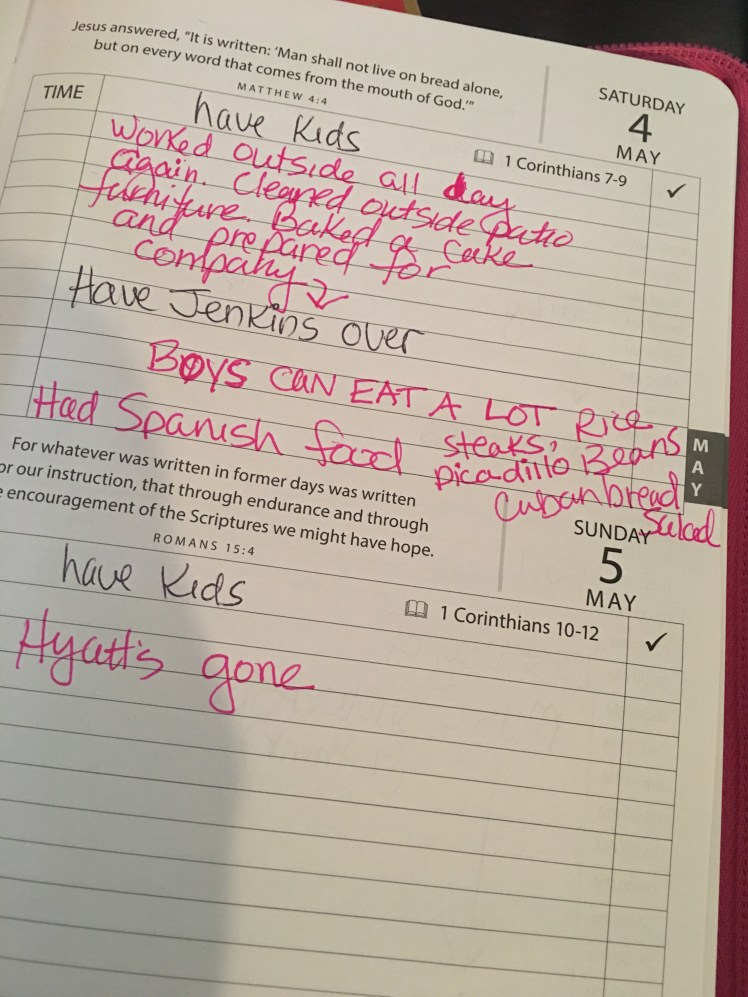 Jesus answered, “It is written: ‘Man shall not live on bread alone,
but on every word that comes from the mouth of God.’”
MATTHEW 4:4
SATURDAY
4
MAY
TIME
have Kids
1 Corinthians 7-9 ✓
Worked outside all day
again. Cleaned outside patio
furniture. Baked a cake
and prepared for
company ↓
Have Jenkins over
BOYS CAN EAT A LOT
Had Spanish food
Rice
steaks, Beans
picadillo
Cuban bread
Salad
MAY
For whatever was written in former days was written
or our instruction, that through endurance and through
e encouragement of the Scriptures we might have hope.
ROMANS 15:4
SUNDAY
5
MAY
have Kids
1 Corinthians 10-12 ✓
Hyatt's gone